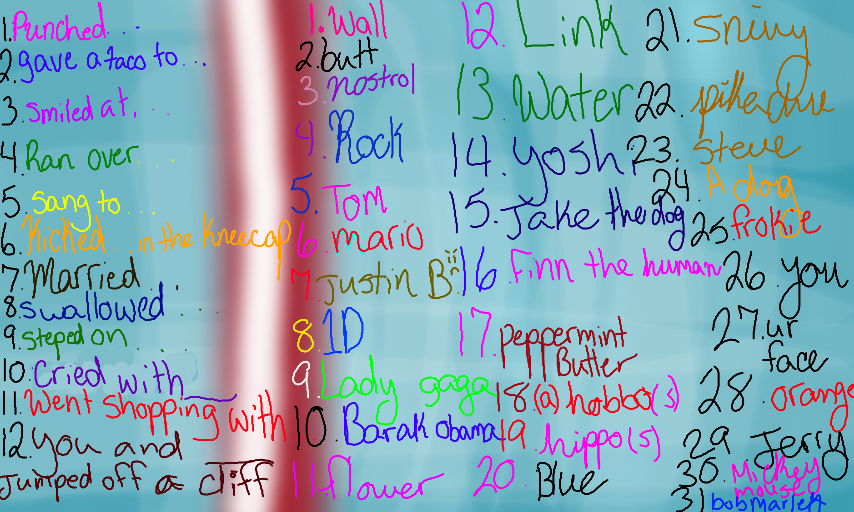 1. Punched...
2. gave a taco to...
3. Smiled at...
4. Ran over...
5. Sang to...
6. Kicked ... in the kneecap
7. Married...
8. swallowed....
9. steped on....
10. Cried with
11. Went shopping with
12. You and
Jumped off a cliff
1. Wall
2. butt
3. nostrol
4. Rock
5. Tom
6. mario
7. Justin B
8. 1D
9. Lady gaga
10. Barak obama
11 flower
12. Link
13. Water
14. Yoshi
15. Jake the dog
16 Finn the human
17. Peppermint
Butler
18 (a) hobbo(s)
19. hippo(s)
20 Blue
21. Snivy
22. pikachu
23. Steve
24 A dog
25 frokie
26 you
27. ur
face
28. orange
29 Jerry
30. Mickey
mouse
31 bob marley